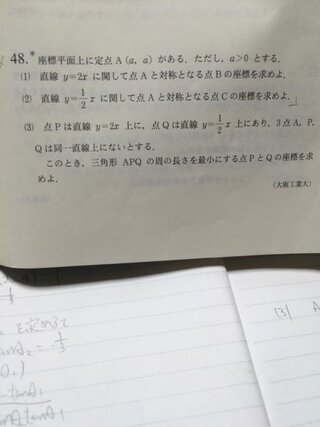 48.* 座標平面上に定点 A (a, a) がある. ただし, a>0 とする.
(1) 直線 y=2x に関して点 A と対称となる点 B の座標を求めよ.
(2) 直線 y=1/2 x に関して点 A と対称となる点 C の座標を求めよ.」
(3) 点 P は直線 y=2x 上に, 点 Q は直線 y=1/2 x 上にあり, 3点 A, P,
Q は同一直線上にないとする.
このとき, 三角形 APQ の周の長さを最小にする点 P と Q の座標を求
めよ.
(大阪工業大)
を求めると
(3) A